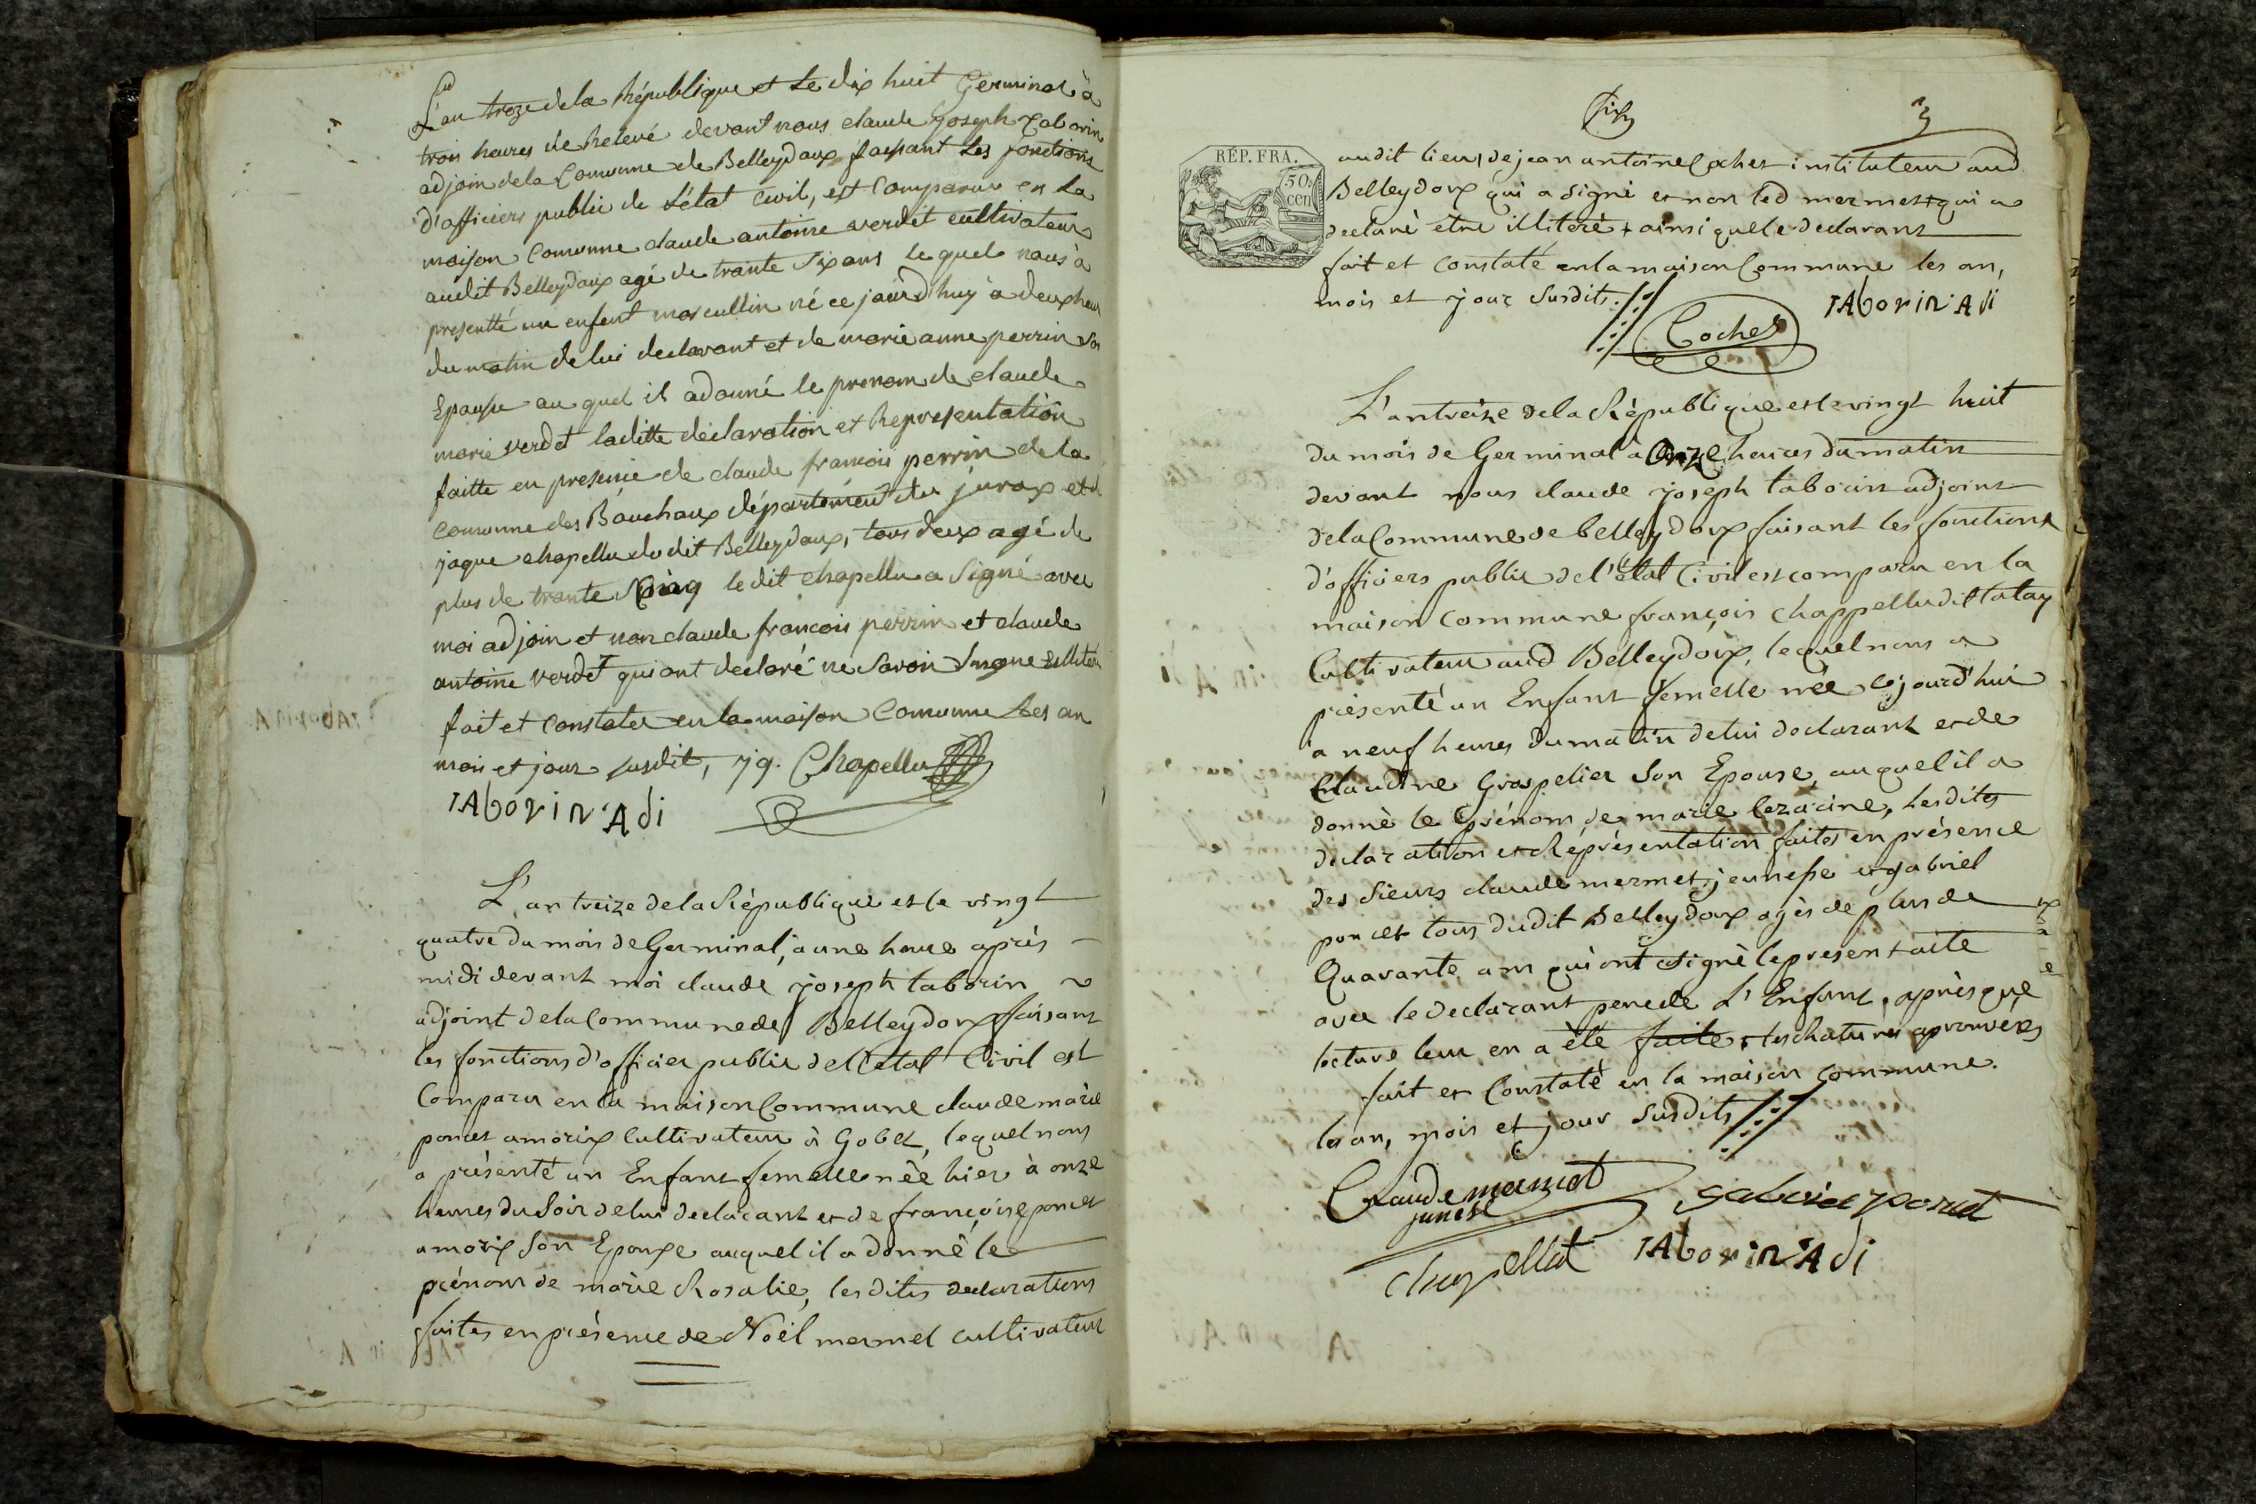 L'an treze de la République et Le dix huit Germinal à
trois heures de Relevé devant nous claude Joseph Taborin
adjoin de la Comunne de Belleydoux faisant Les fonctions
d'officiers public de L'état Civil, est Comparue en La
maison Comunne claude antoine verdet cultivateur
audit Belleydoux agé de trante Six ans le quel nous à
presentté un enfent masculin né ce jourd'huy à deux heur
du matin de lui declarant et de marie anne perrin son
Epouse au quel il a donné le prenom de claude
marie verdet laditte déclaration et Representation
faitte en presence de claude francois perrin de la
Comunne des Bouchoux département du jurax et de
jaque chapellu dudit Belleydoux, tous deux agé de
plus de trante Cinq le dit chapellu a Signé avec
moi adjoin et non claude francois perrin et claude
antoine verdet qui ont declaré ne Savoir Singne illiteré
fait et Constater en la maison Comunne Les an
mois et jour susdit, jg. Chapellu
TAborin Adi
L'an treize de la République et le vingt
quatre du mois de Germinal, a une heure après
midi devant moi claude joseph taborin
adjoint de la Commune de Belleydoux faisant
les fonctions d'officier public de l'état Civil est
Comparu en la maison Commune claude marie
poncet amorix Cultivateur à Gobet, lequel nous
a présenté un Enfant femelle née hier à onze
heures du Soir de lui declarant et de françoise poncet
amorix Son Epouxe auquel il a donné le
prénom de marie Rosalie, lesdites declarations
faites en présence de Noël mermet cultivateur
RÉP. FRA.
50 cen
audit lieu, de jean antoine Cochet instituteur aud
Belleydoux qui a signé et non led mermet qui a
declaré etre illiteré + ainsi que le declarant
fait et constaté en la maison Commune les an,
mois et jour Susdits.
TAborin Adi
Cochet
L'an treize de la République et le vingt huit
du mois de Germinal à onze heures du matin
devant nous claude joseph taborin adjoint
de la Commune de belleydoux faisant les fonctions
d'officiers public de l'état Civil est comparu en la
maison Commune françois chappellu dit tatay
Cultivateur aud Belleydoux, lequel nous a
présenté un Enfant femelle née cejourd'hui
a neuf heures du matin de lui declarant et de
Claudine Grospelier Son Epouse, auquel il a
donné le prénom de marie lezarine, lesdites
declaration et Réprésentation faites en présence
des Sieurs claude mermet jeunesse et gabriel
poncet tous dudit Belleydoux agés de plus de
Quarante ans qui ont signé le present acte
avec le declarant pere de L'Enfant, après que
lecture leur en a été faite,
fait et Constaté en la maison commune.
les an, mois et jour Susdits
Claude mermet
junese
gabriel poncet
chapellut
TAborin Adi